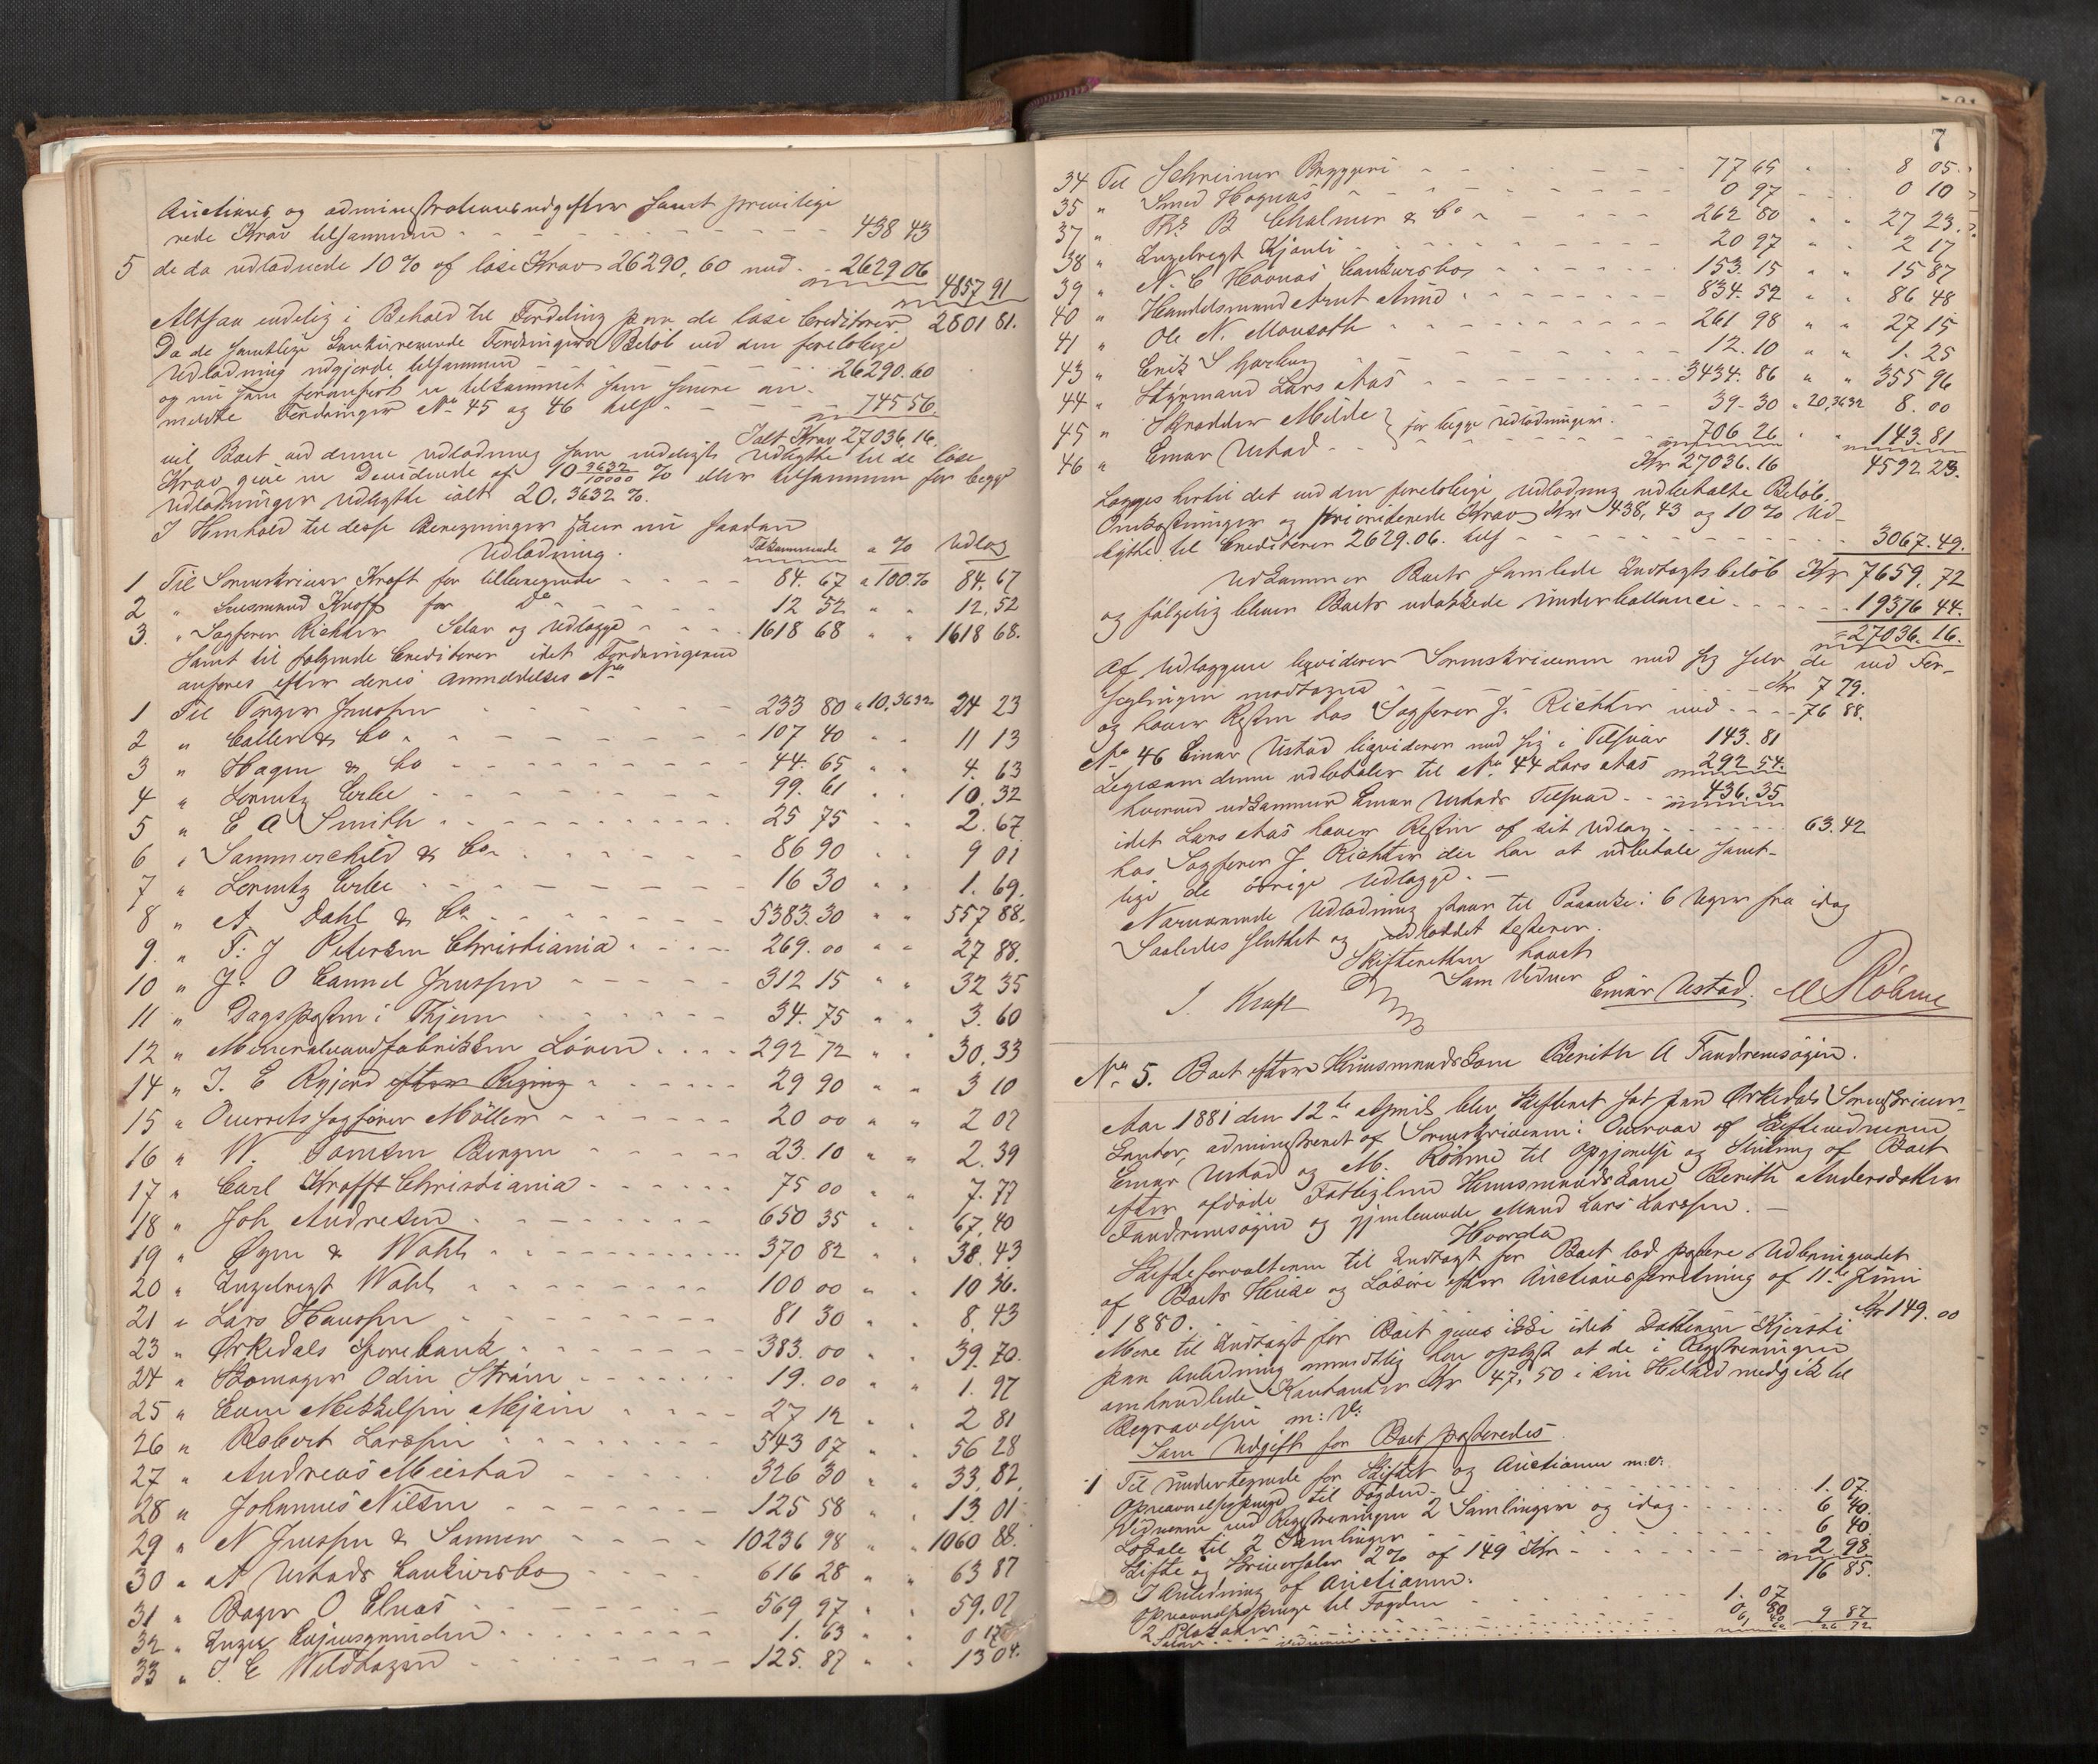 Auctions og administrationsudgifter samt privilige
rede Krav tilsammen - - - 438 43
5 de da udlodnede 10% af löse Krav 26290,60 med - 2629 06
4857 91
Altsaa endelig i Behold til Fordeling paa de löse Creditorer 2801 81.
Da de samtlige Konkurrerende Fordringers Belöb ved den forelöbige
Udlodning udgjorde tilsammen - - - 26290.60
og nu som foranfört er tilkommet som senere an-
meldte Fordringer No 45 og 46 tils - - - 745 56
Ialt Krav 27036.16.
vil Boet ved denne Udlodning som endeligt Udbytte til de löse
Krav give en Devidende af 10 3632/10000 % eller tilsammen for begge
Udlodninger Udbytte ialt 20.3632 %.
I Henhold til disse Beregninger skeer nu saadan
Udlodning. Tilkommende a % Udlæg
1 Til Sorenskriver Kraft for tillæsegrende - - 84.67 a 100% 84.67
2 " Lensmand Knoff for Do - - 12 52 " " 12.52
3. " Sagförer Richter Salær og Udlægge - - 1618 68 " " 1618 68.
Samt til fölgende Creditorer idet Fordringerne
anföres efter deres Anmeldelses No
1 Til Torger Jenssen - - 233 80 a 10.3632 24 23
2 " Collen & Co - - 107 40 " " 11 13
3 " Hagen & Co - - 44.65 " " 4.63
4 " Lorentz Erbe - - 99.61 " " 10.32
5 " E A Smith - - 25 75 " " 2.67
6 " Sommerchild & Co - - 86 90 " " 9 01
7 " Lorentz Erbe - - 16 30 " " 1.69.
8 " A Dahl & Co - - 5383.30 " " 557 88.
9. " F. J Petersen Christiania - - 269.00 " " 27 88.
10 " J. O Cannel Jenssen - - 312 15 " " 32 35
11 " Dagsposten i Thjem - - 34.75 " " 3.60
12 " Mineralvandfabrikken Löven - - 292 72 " " 30.33
14 " I. E Ryjord efter Reging - - 29 90 " " 3 10
15 " Overretssagförer Möller - - 20 00 " " 2 07
16 " W. Jansen Bergen - - 23.10 " " 2.39
17 " Carl Krafft Christiania - - 75 00 " " 7.77
18 " Joh Andresen - - 650 35 " " 67.40
19 " Öyen & Wahl - - 370 82 " " 38.43
20 " Enzelregt Wahl - - 100 00 " " 10 36.
21 " Lars Hanssen - - 81 30 " " 8.43
23 " Örkedals Sparebank - - 383.00 " " 39.70.
24 " Skomager Odin Ström - - 19.00 " " 1.97
25 " Even Mekkelsen Mjøen - - 27 12 " " 2 81
26 " Robert Larssen - - 543 07 " " 56 28
27 " Andreas Meistad - - 326 30 " " 33.82.
28 " Johannes Nilsen - - 125 58 " " 13.01
29 " N Jenssen & Sönner - - 10236 98 " " 1060 88.
30 " A Ustads Konkursbo - - 616 28 " " 63 87
31 " Bager O Elnæs - - 569 97 " " 59.07
32 " - - 1.63 " " 0 17
33 " I. E Weldhagen - - 125.87 " " 13 04.
7
34 Til Schreiner Bryggeri - - 77 65 " " 8 05.
35 " Smed Hognæs - - 0 97 - - 0 10
37 " Ths B Chalmer & Co - - 262 80 " " 27 23.
38 " Enzelregt Kjönli - - 20 97 " " 2 17
39 " N. C Havnæs Conkursbo - - 153.15 " " 15 87
40 " Handelsmand Arnt Aune - - 834.52 " " 86 48
41 " Ole N. Mansath - - 261 98 " " 27 15
43 " Erik S Garberg - - 12.10 " " 1.25
44 " Styrmand Lars Aas - - 3434.86 " " 355 96
45 " Skrædder Milde } for begge Udlodninger. - - 39-30 " 20,3632 8.00
46 " Einar Ustad - - 706 26 " " 143.81
Kr 27036.16 4592 23.
Lægges hertil det ved den forelöbige Udlodning udbetalte Belöb.
Omkostninger og prioriterede Krav Kr 438,43 og 10% Ud-
bytte til Creditorer 2629.06. tils - - - 3067.49.
Udkommer Boets samlede Indtægtsbelöb Kr 7659.72
og fölgelig bliver Boets udækkede Underballance - - - 19376 44.
= 27036.16.
Af Udlæggene liqviderer Sorenskriveren med sig selv de ved For-
seglingen modtagne - - - Kr 7 79.
og haver Resten hos Sagförer J. Richter med - - - 76 88.
No 46 Einar Ustad liqviderer med sig i Tilsvar 143.81
Ligesom denne udbetaler til No 44 Lars Aas 292 54.
hvorved udkommer Einar Ustads Tilsvar - - 436.35
idet Lars Aas haver Resten af sit Udlæg - - - 63.42
hos Sagförer J Richter der har at udbetale samt-
lige de övrige Udlægge. -
Nærværende Udlodning staaer til Paaanke i 6 Uger fra idag
Saaledes sluttet og udloddet testerer.
Skifteretten hævet
Som Vidner
I. Kraft Einar Ustad. M Röhme
No 5. Boet efter Huusmandskone Berith A Fandremsögjen.
Aar 1881 den 12te April blev Skifteret sat paa Örkedals Sorenskriver-
kontor, administreret af Sorenskriveren i Overvær af Skiftevidnerne
Einar Ustad og M. Röhme til Opgjörelse og Slutning af Boet
efter afdöde Fattiglem Huusmandskone Berith Andersdatter
Fandremsögjen og gjenlevende Mand Lars Larssen. -
Hvorda
Skifteforvalteren til Indtægt for Boet lod postere Udbringendet
af Boets Heise og Lösöre efter Auctionsforretning af 11te Juni
1880. - Kr 149.00
Mere til Indtægt for Boet gives ikke idet Datteren Kjersti
paa Anledning mundtlig har oplyst at de i Registreringen
omhandlede Kontanter Kr 47.50 i sin Helhed medgik til
Begravelsen m: V:
Som Udgift for Boet posteredes.
1 Til undertegnede for Skiftet og Auctionen m:v:
Opnævnelsespenge til Fogden - - - 1.07.
Vidnerne ved Registreringen 2 Samlinger og idag - - 6 40.
Lokale til 2 Samlinger - - - 6 40.
Skifte og Skriversalær 2% af 149 Kr - - - 2.98.
16 85.
I Anledning af Auctionen.
Opnævnelsespenge til Fogden - - - 1.07
2 Plakater - - - 0 80 9 87
26 72